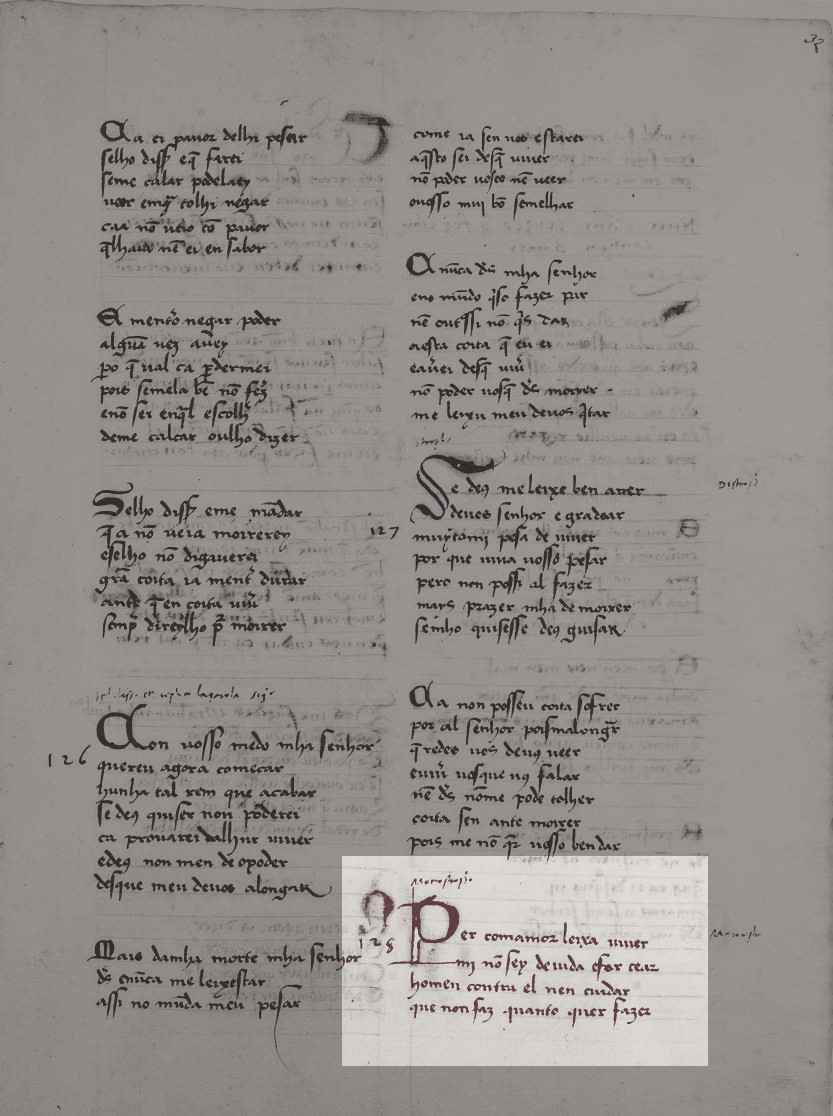 35
Ca ei pauor delhi pesar
selho diss̃ eq̃ farei
seme calar podelaey
ueer emq̃ tolhi negar
caa nõ ueio cõ pauor
q̃lhaia nẽ ei en sabor
E mentr̃o negar poder
algũa uez auey
ꝑo q̃ ual ca ꝑdermei
pois semela bẽ nõ fez̃
enõ sei enq̃l escolh̃
deme calar oulho dizer
Selho diss̃ eme mãdar
q̃a nõ ueia moirerey
eselho nõ digauerei
grã coita ia mentr̃ durar
ante q̃ en coita uiũ
semp̃ direylho p̃ moirer
126
Con uosso medo mha senhor
quereu agora comecar
hunha tal rem que acabar
se deꝯ quiser non poderei
ca prouarei dalhur uiuer
edeꝯ non men de opoder
desque meu deuos alongar
Mais damha morte mha senhor
ds̃ enũca me leixestar
assi no mũda meu pesar
come ia sen uos estarei
aq̃sto sei desq̃ uiuer
nõ poder uosco nẽ ueer
ouosso mui bõ semelhar
Ca nũca ds̃ mha senhor
eno mũdo q̃so fazer par
nẽ outssi nõ q̃s dar
aesta coita q̃ eu ei
eauei desq̃ uiũ
nõ poder uosq̃ ds̃ moirer
me leyxu meu deuos q̃tar
127
Se deꝯ me leixe ben auer
deuos senhor e gradoar
muytomi pesa de uiuer
por que uiua uosso pesar
pero non possi al fazer
mays prazer mha de moirer
seinho quisesse deꝯ guisar
Ca non posseu coita sofrer
por al senhor poismalongar̃
q̃redes uos deuꝯ ueer
euiũ uosque uꝯ falar
nẽ ds̃ nõme pode tolher
coita sen ante moirer
pois me nõ q̃r uosso bendar
128
Per comamor leixa uiuer
mi nõ sey deuida esforcear
homen contra el nen cuidar
que non faz quanto quer fazer